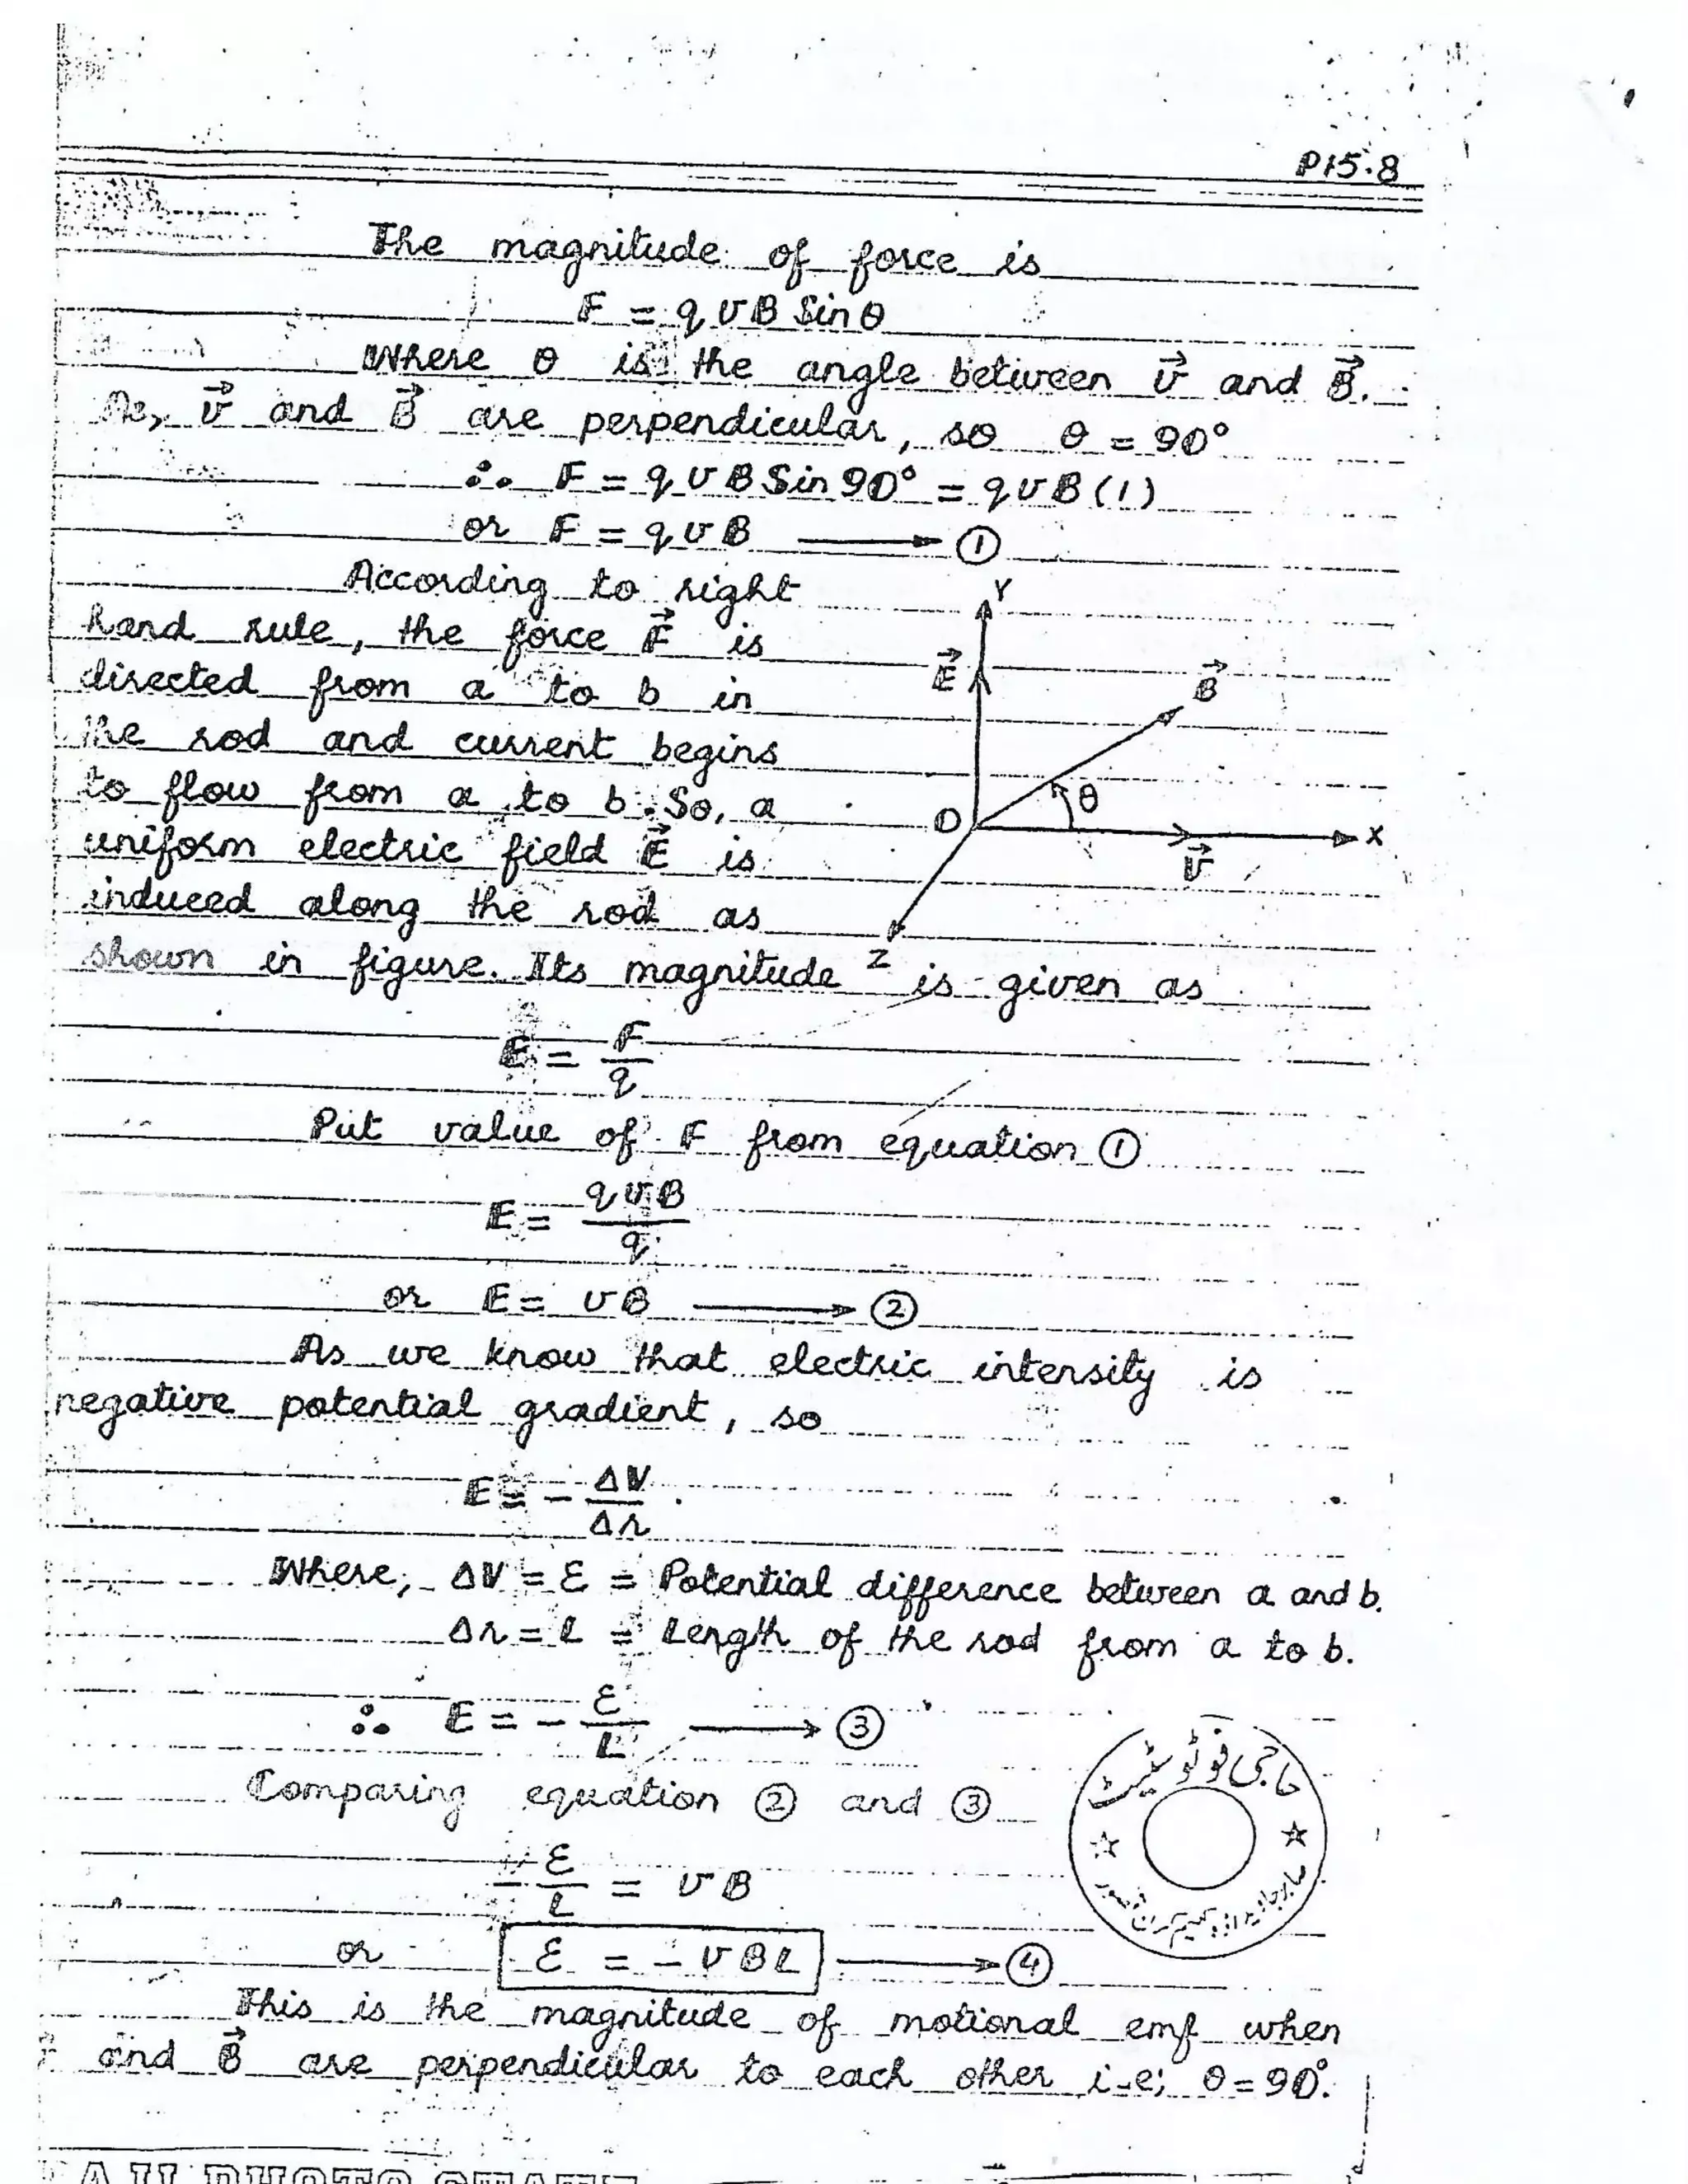 P15.8
The magnitude of force is
F = qvB Sinθ
Where θ is the angle between v⃗ and B⃗.
As, v⃗ and B⃗ are perpendicular, so θ = 90°
∴ F = qvB Sin90° = qvB(1)
or F = qvB ⟶ ①
According to right
hand rule, the force F⃗ is
directed from a to b in
the rod and current begins
to flow from a to b. So, a
uniform electric field E⃗ is
induced along the rod as
shown in figure. Its magnitude is given as
Y
E⃗
B⃗
θ
O
X
v⃗
Z
E = F/q
Put value of F from equation ①
E = qvB/q
or E = vB ⟶ ②
As we know that electric intensity is
negative potential gradient, so
E = - ΔV/Δr
Where, ΔV = Ɛ = Potential difference between a and b.
Δr = L = Length of the rod from a to b.
∴ E = - Ɛ/L ⟶ ③
Comparing equation ② and ③
- Ɛ/L = vB
or Ɛ = - vBL ⟶ ④
This is the magnitude of motional emf when
and B⃗ are perpendicular to each other i.e; θ = 90°.
حاجی فوٹو سٹیٹ